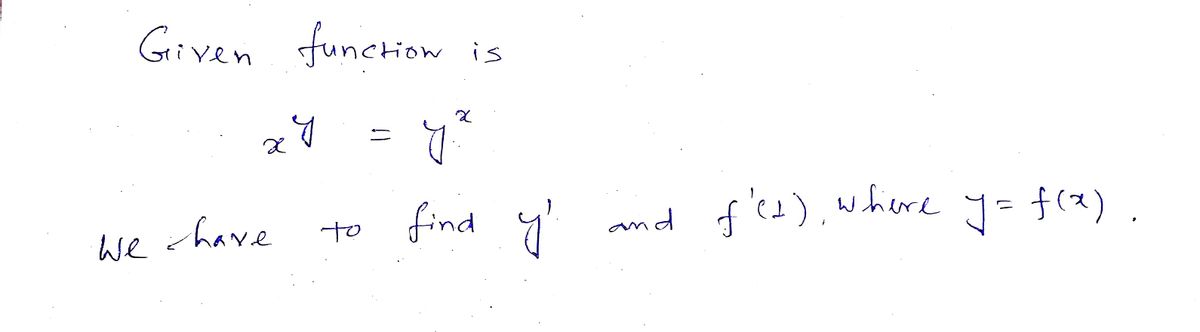 Given function is
x^y = y^x
We have to find y' and f'(1), where y = f(x).